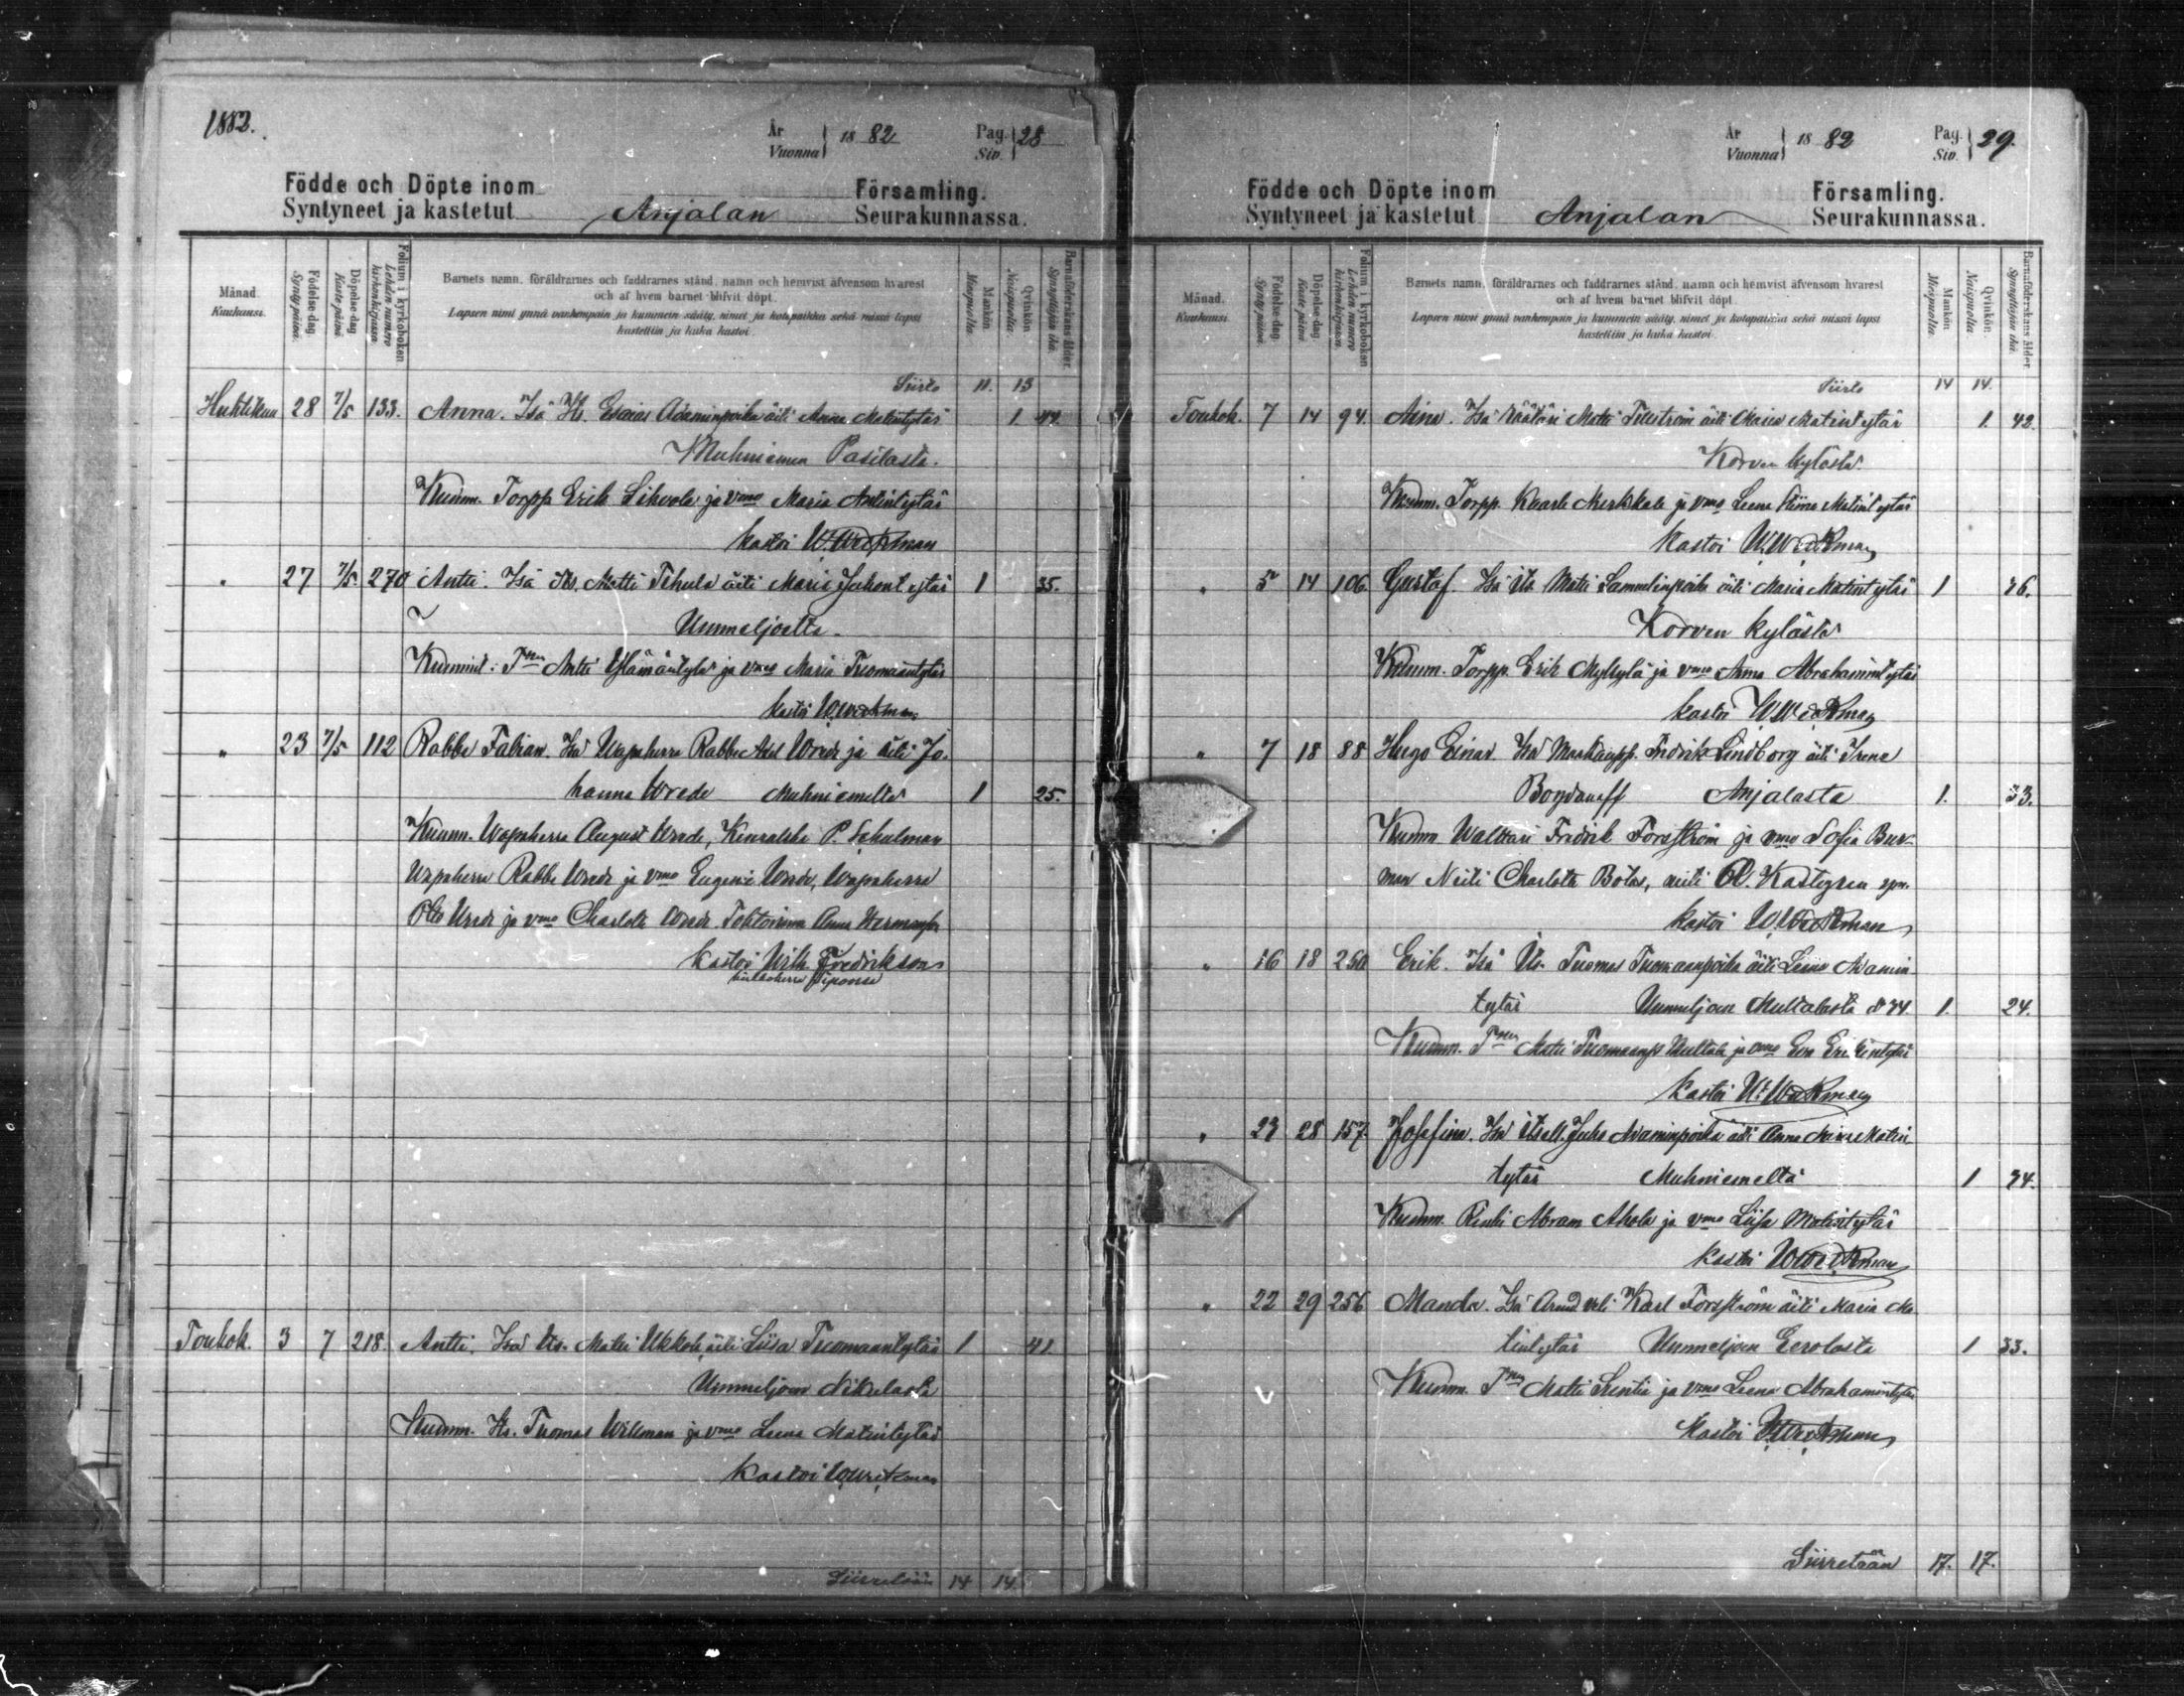 1882.
År
Vuonna 1882
Pag.
Siv. 28
Födde och Döpte inom Församling.
Syntyneet ja kastetut Anjalan Seurakunnassa.
Månad.
Kuukausi.
Födelse dag.
Syntypäivä.
Döpelse dag
Kaste päivä.
Folium i kyrkobokan
Lehden numero kirkonkirjassa.
Barnets namn, föräldrarnes och faddrarnes stånd, namn och hemvist äfvensom hvarest
och af hvem barnet blifvit döpt.
Lapsen nimi ynnä vanhempain ja kummein sääty, nimet ja kotopaikka sekä missä lapsi
kastettiin ja kuka kastoi.
Mankön
Miespuolta.
Qvinkön
Naispuolta.
Barnaföderskans ålder.
Synnyttäjän ikä.
Siirto 11. 13
Huhtikuu 28 7/5 133. Anna. Isä Its. Esaias Adaminpoika äiti Anna Matintytär 1 44.
Muhniemen Pasilasta.
Kumm. Torpp Erik Sihvola ja vmo Maria Antintytär
kastoi W. Weckman
" 27 7/5 270 Antti. Isä Its. Matti Tihula äiti Maria Juhontytär 1 35.
Ummeljoelta.
Kummit: Antti Ylämäntylä ja vmo Maria Tuomaantytär
kastoi W. Weckman
" 23 7/5 112 Rabbe Fabian. Isä Wapaherra Rabbe Axel Wrede ja äiti Jo-
hanna Wrede Muhniemeltä 1 25.
Kumm. Wapaherra August Wrede, P. Schulman
Wapaherra Rabbe Wrede ja vmo Eugenie Wrede, Wapaherra
Otto Wrede ja vmo Charlotte Wrede Tohtorinna Anna
kastoi Wilh. Fredrikson
kirkkoherra Siponsa
Toukok. 3 7 218. Antti. Isä Its. Matti Ukkola äiti Liisa Tuomaantytär 1 41
Ummeljoen Nikulasta
Kumm. Its. Tuomas Willman ja vmo Leena Matintytär
kastoi W. Weckman
Siirretään 14 14
År
Vuonna 1882
Pag.
Siv. 29.
Födde och Döpte inom Församling.
Syntyneet ja kastetut Anjalan Seurakunnassa.
Månad.
Kuukausi.
Födelse dag.
Syntypäivä.
Döpelse dag
Kaste päivä.
Folium i kyrkobokan
Lehden numero kirkonkirjassa.
Barnets namn, föräldrarnes och faddrarnes stånd, namn och hemvist äfvensom hvarest
och af hvem barnet blifvit döpt.
Lapsen nimi ynnä vanhempain ja kummein sääty, nimet ja kotopaikka sekä missä lapsi
kastettiin ja kuka kastoi.
Mankön
Miespuolta.
Qvinkön.
Naispuolta.
Barnaföderskans ålder
Synnyttäjän ikä.
Siirto 14 14.
Toukok. 7 14 94. Aina. Isä Räätäri Matti Tillström äiti Maria Matintytär 1. 42.
Korven kylästä
Kumm. Torpp. Kaarle Merkkala ja vmo Leena Stiina Matintytär
kastoi W. Weckman
" 5 14 106. Gustaf. Isä Its Matti Sammelinpoika äiti Maria Matintytär 1 36.
Korven kylästä
Kumm. Torpp. Erik Myllylä ja vmo Anna Abrahamintytär
kastoi W. Weckman
" 7 18 88 Hugo Einar. Isä Maakaupp. Fredrik Lindborg äiti Irene
Bogdanoff Anjalasta 1. 33.
Kumm Waltari Fredrik Forsström ja vmo Sofia Bur-
man Neiti Charlotta neiti O. Kastegren
kastoi W. Weckman
" 16 18 250 Erik. Isä Its. Tuomas Tuomaanpoika äiti Leena Adamin
tytär Ummeljoen Multalasta 1. 24.
Kumm. Matti Tuomaanp Multala ja vmo Eva Erikintytär
kastoi W. Weckman
" 23 28 157. Josefina. Isä Itsell. Juho Adaminpoika äiti Anna Matin
tytär Muhniemeltä 1 34.
Kumm. Renki Abram Ahola ja vmo Liisa Matintytär
kastoi W. Weckman
" 22 29 256 Manda. Isä Karl Forsström äiti Maria Ma
tintytär Ummeljoen Eerolasta 1 33.
Kumm. Matti ja vmo Leena Abrahamintytär
Kastoi W. Weckman
Siirretään 17. 17.